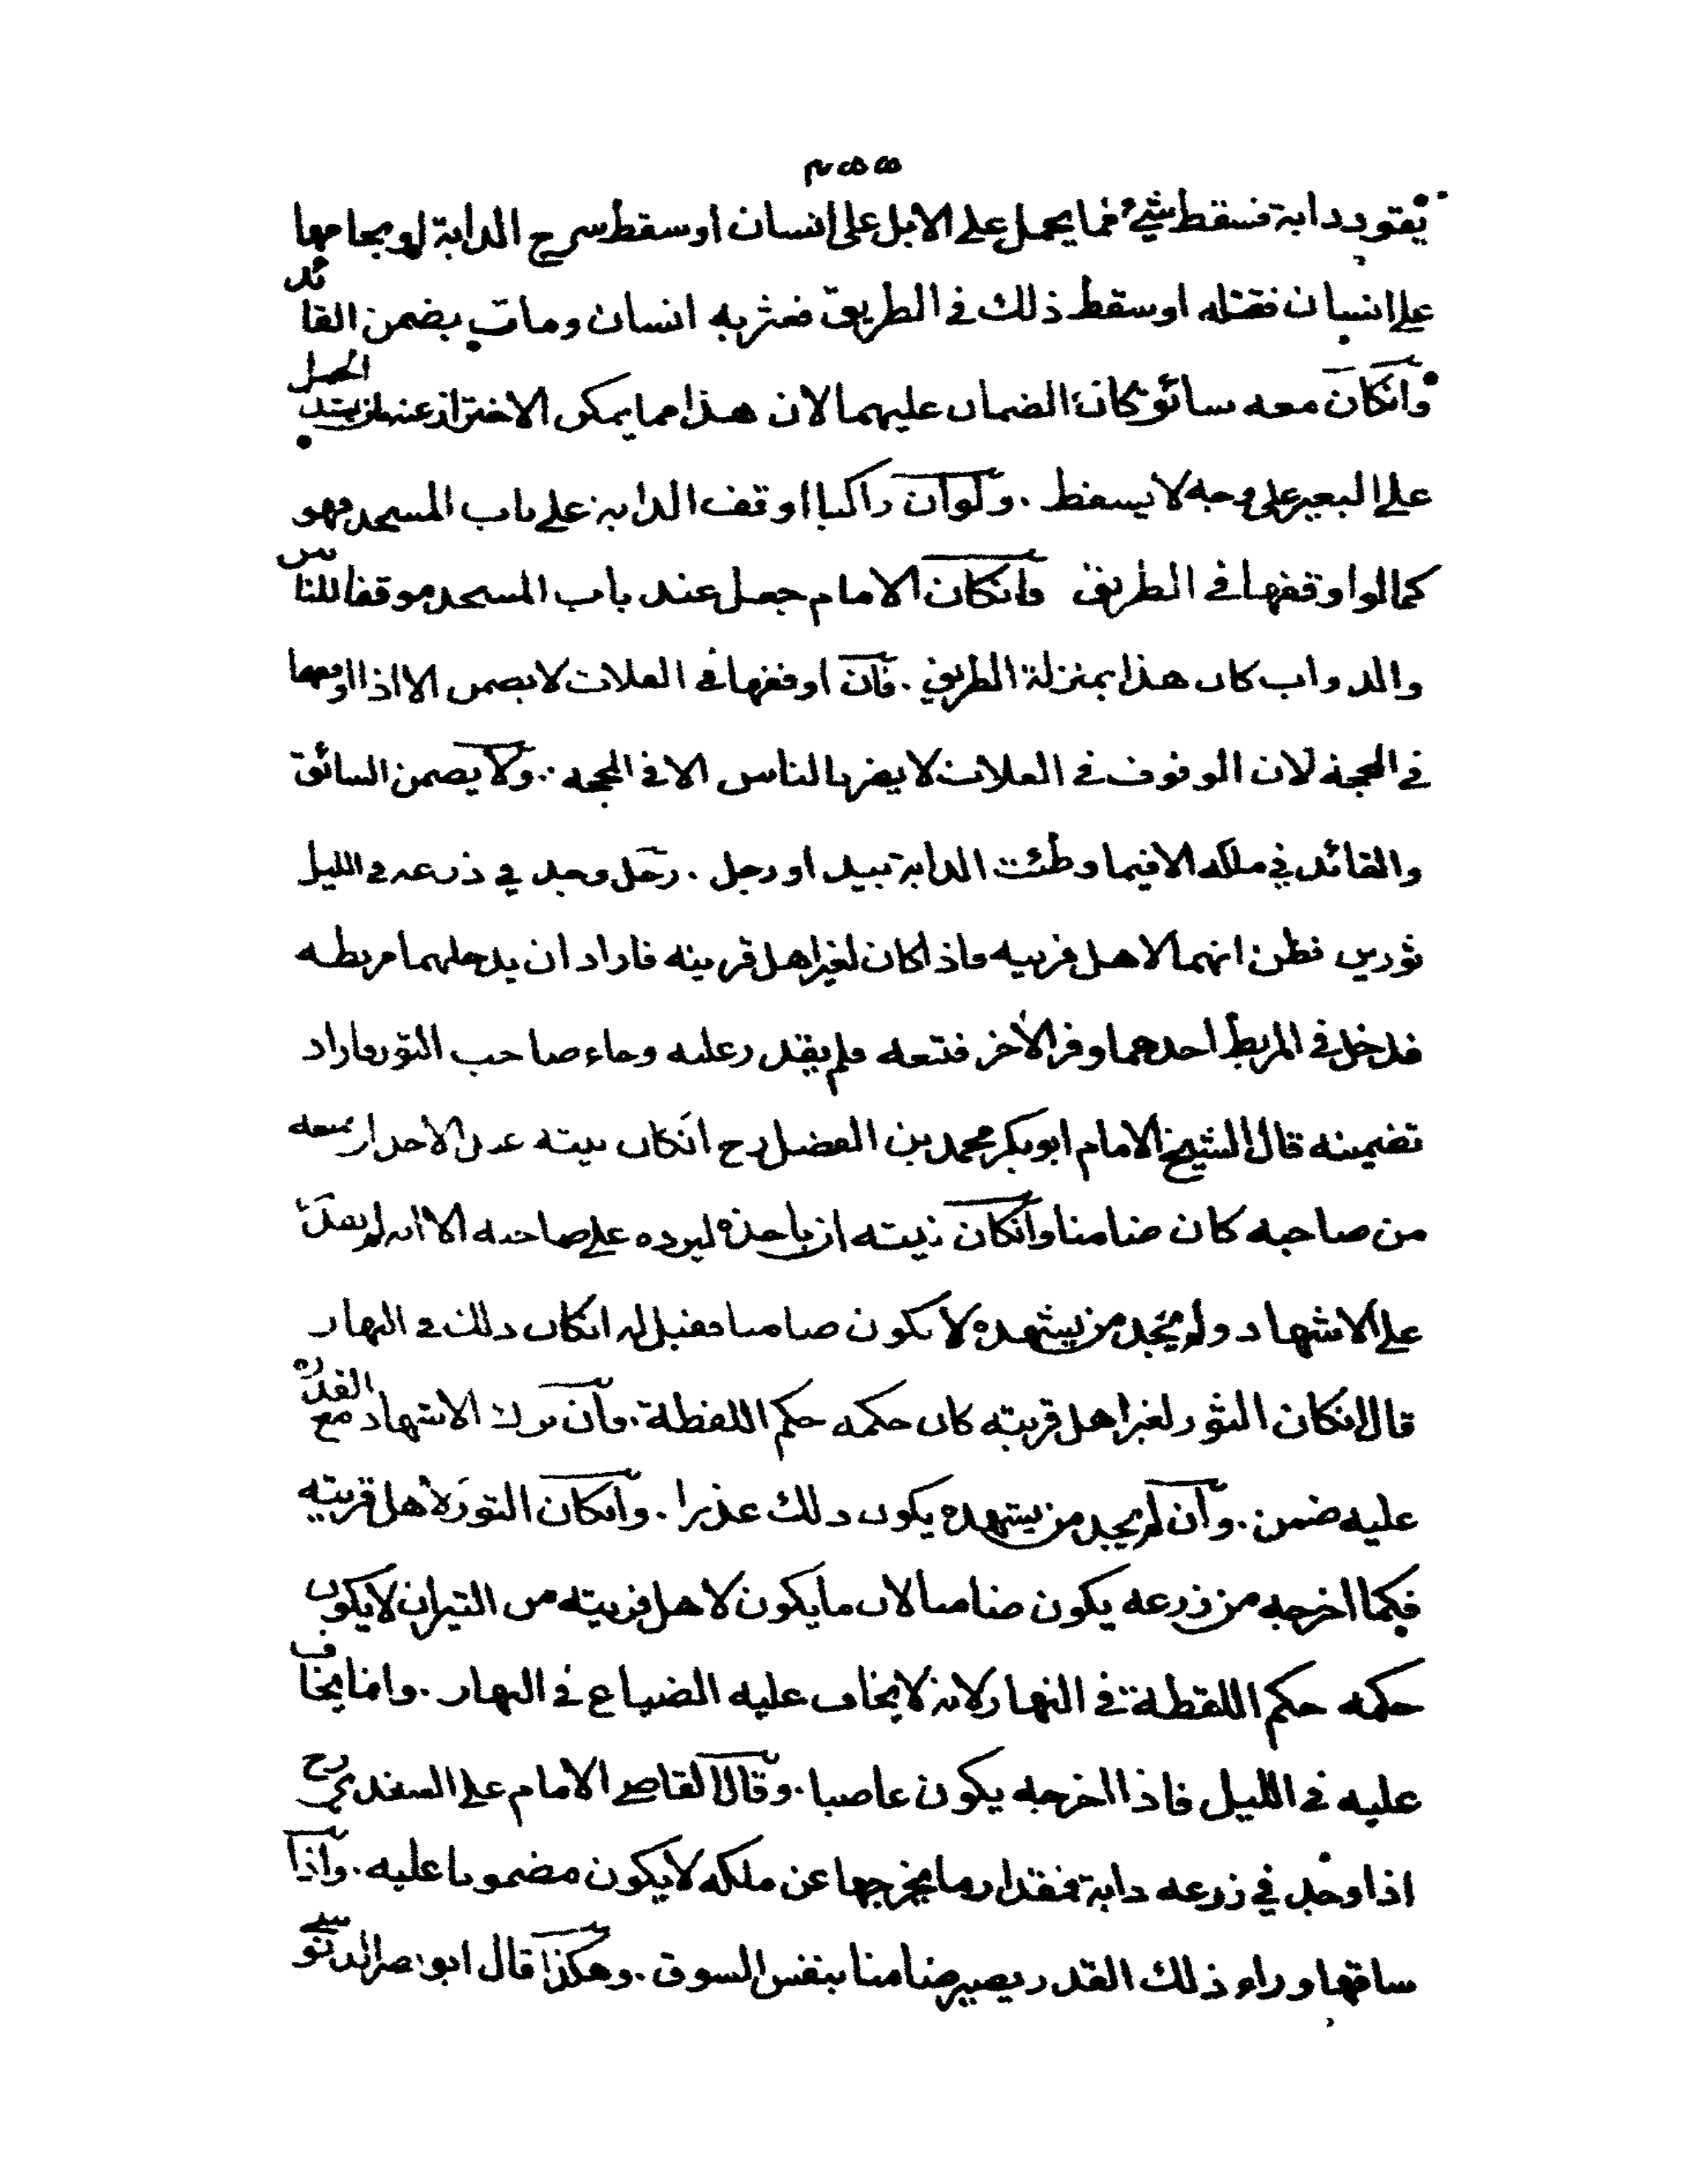 ٢٥٥
يقود دابة فسقط شيء مما يحمل على الابل على انسان او سقط سرج الدابة او لجامها
على انسان فقتله او سقط ذلك في الطريق فعثر به انسان ومات يضمن القائد
وانكان معه سائق كان الضمان عليهما لان هذا مما يمكن الاحتراز عنه بان يشد الحمل
على البعير على وجه لا يسقط . ولو ان راكبا اوقف الدابة على باب المسجد فهو
كما لو اوقفها في الطريق وانكان الامام جعل عند باب المسجد موقفا للناس
والدواب كان هذا بمنزلة الطريق . فان اوقفها في الفلات لا يضمن الا اذا اوقفها
في المحجة لان الوقوف في الفلات لا يضر بالناس الا في المحجه . ولا يضمن السائق
والقائد في ملكه الا فيما وطئت الدابة بيد او رجل . رجل وجد في زرعه في الليل
ثورين فظن انهما لاهل قريته فاذا كان لغير اهل قريته فاراد ان يدخلهما مربطه
فدخل في المربط احدهما وفر الاخر فتبعه فلم يقدر عليه وجاء صاحب الثور فاراد
تضمينه قال الشيخ الامام ابو بكر محمد بن الفضل رح انكان نيته عند الاخذ ان يمنعه
من صاحبه كان ضامنا وانكان نيته ان ياخذه ليرده على صاحبه الا انه لم يقدر
على الاشهاد ولم يجد من يشهده لا يكون ضامنا فقيل له انكان ذلك في النهار
قال انكان الثور لغير اهل قريته كان حكمه حكم اللقطة . وان ترك الاشهاد مع القدرة
عليه ضمن . وان لم يجد من يشهده يكون ذلك عذرا . وانكان الثور لاهل قريته
فكما اخرجه من زرعه يكون ضامنا لان ما يكون لاهل قريته من الثيران لا يكون
حكمه حكم اللقطة في النهار لانه لا يخاف عليه الضياع في النهار . وانما يخاف
عليه في الليل فاذا اخرجه يكون غاصبا . وقال القاضي الامام على السغدي رح
اذا وجد في زرعه دابة فبقدر ما يخرجها عن ملكه لا يكون مضمونا عليه . واذا
ساقها وراء ذلك القدر يصير ضامنا بنفس السوق . وهكذا قال ابو نصر الدبوسي